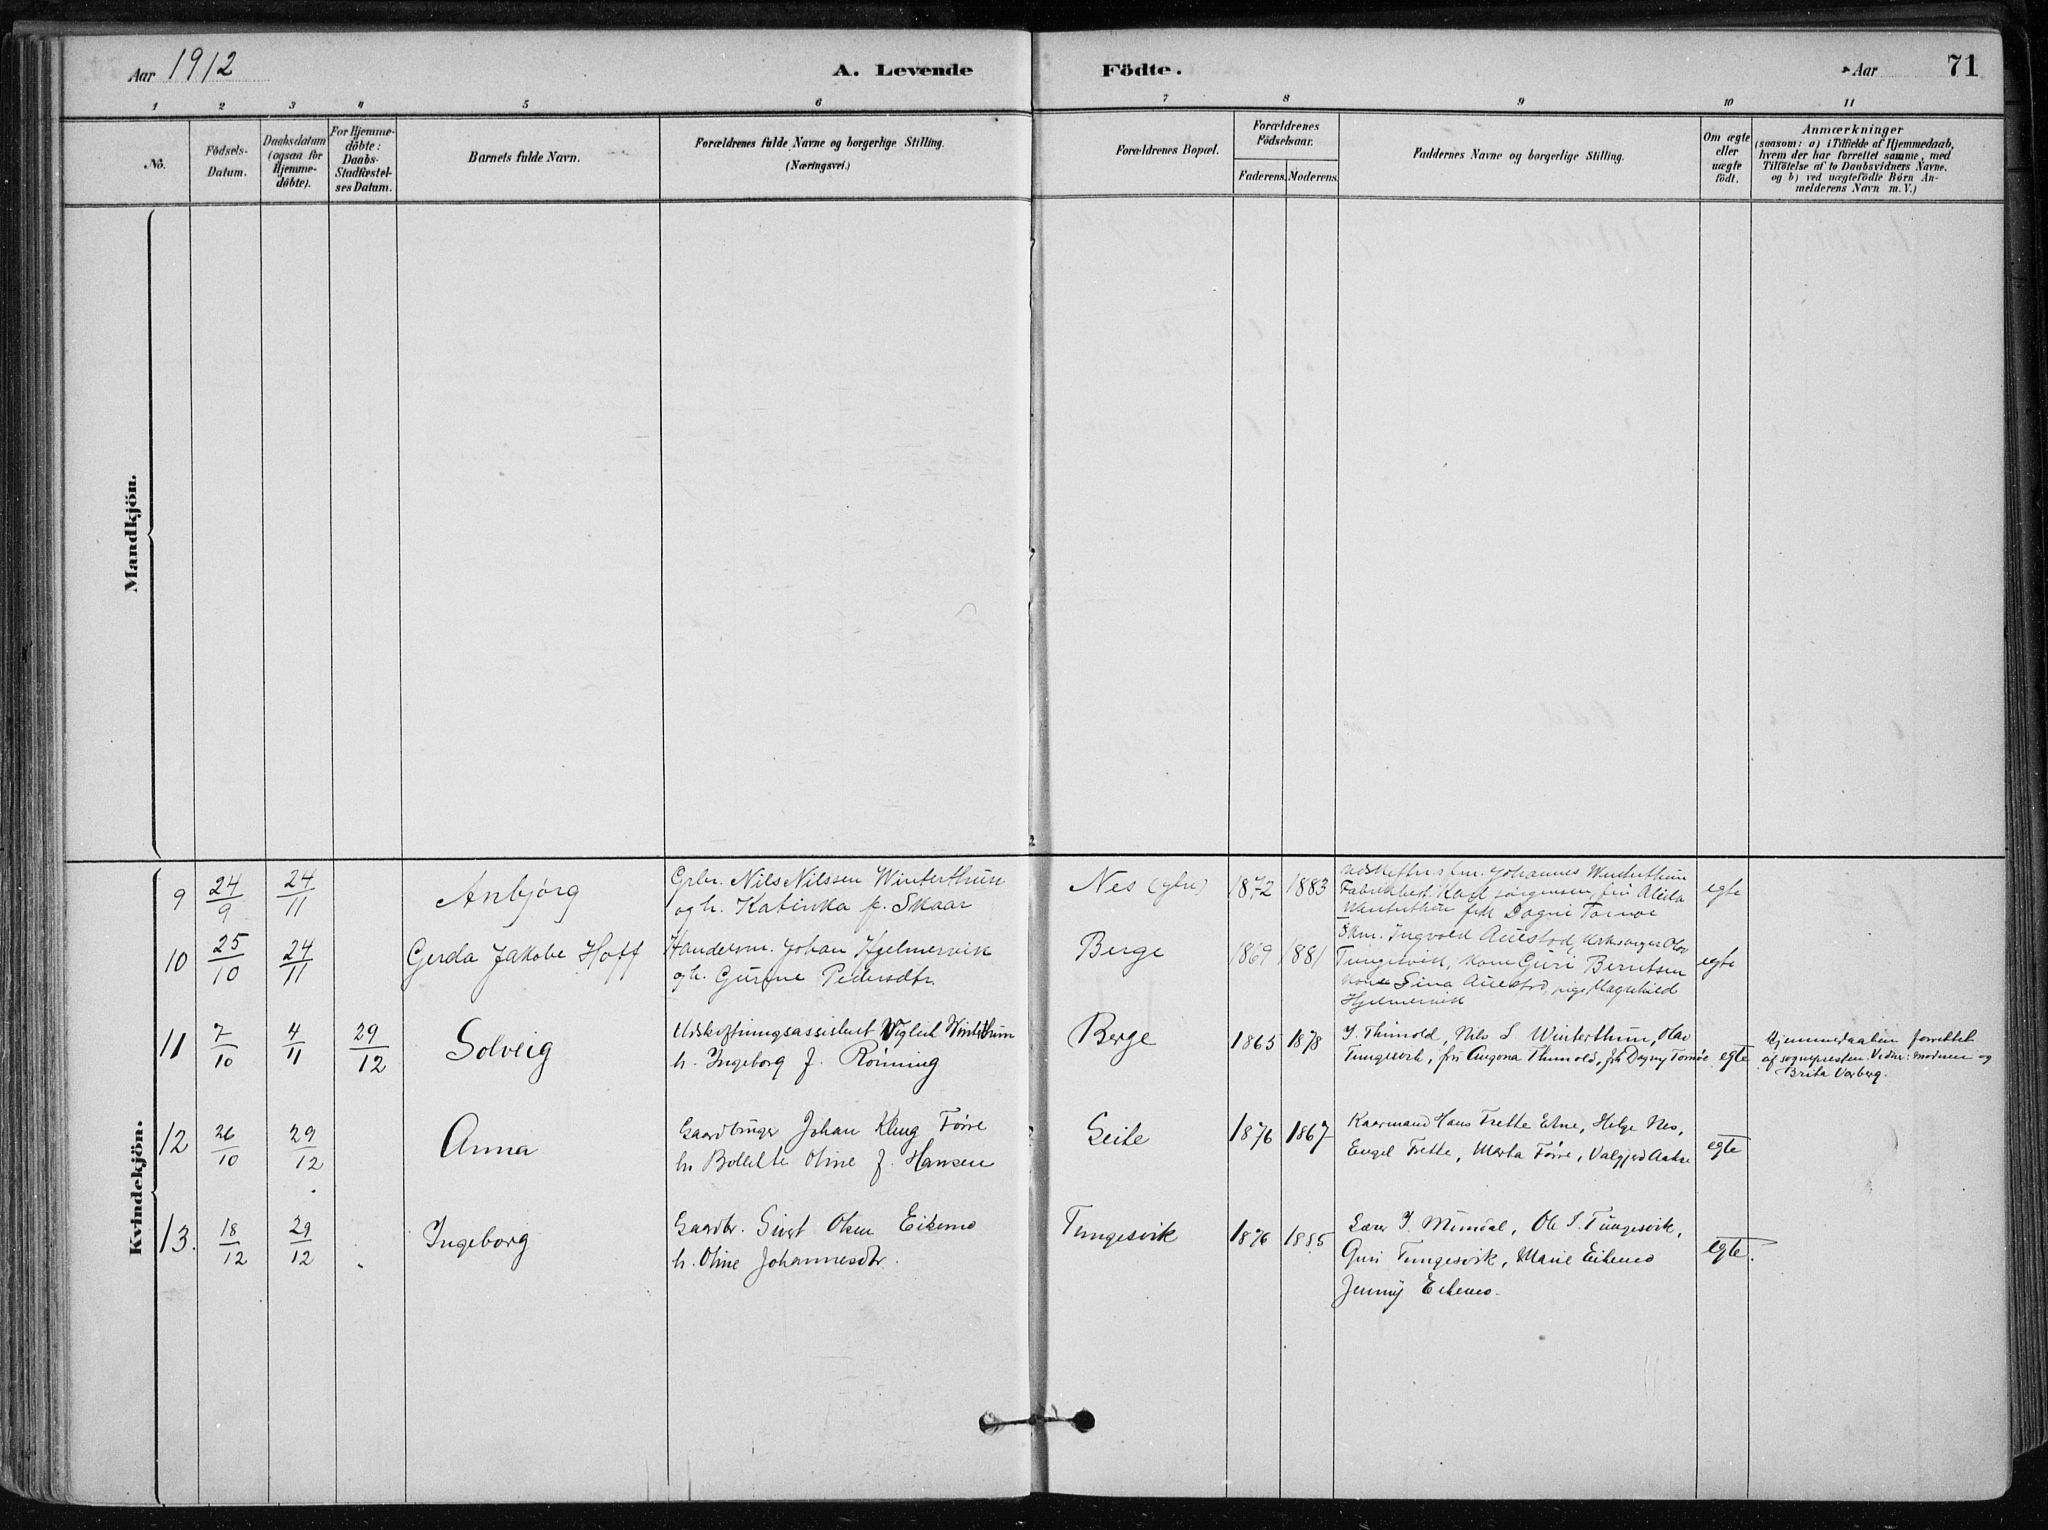 Aar 1912
A. Levende
Födte.
Aar
71
1 2 3 4 5 6 7 8 9 10 11
No.
Födsels-
Datum.
Daabsdatum
(ogsaa for
Hjemme-
döbte).
For Hjemme-
döbte:
Daabs-
Stadfæstel-
ses Datum.
Barnets fulde Navn.
Forældrenes fulde Navne og borgerlige Stilling.
(Næringsvei.)
Forældrenes Bopæl.
Forældrenes
Födselsaar.
Faderens. Moderens.
Faddernes Navne og borgerlige Stilling.
Om ægte
eller
uægte
födt.
Anmærkninger
(saasom: a) i Tilfælde af Hjemmedaab,
hvem der har forrettet samme, med
Tilföielse af to Daabsvidners Navne.
og b) ved uægtefödte Börn An-
melderens Navn m. V.)
Mandkjön.
Kvindekjön.
9 24/9 24/11 Anbjörg
Gbr. Nils Nilssen Winterthun
og h. Katinka f. Skaar
Nes 1872 1883
Johannes Winterthun
Fabrikbest. Karl Jörgensen, fru Alida
Winterthun frk Dagni Tornöe
egte
10 25/10 24/11 Gerda Jakobe Hoff
Handelsm. Johan Hjelmervik
og h. Gurine Pedersdtr.
Berge 1869 1881
Skm. Ingvald Auestad, Kirkesanger Olav
Tungesvik, kone Guri Berntsen
kone Sina Auestad, pige Magnhild
Hjelmervik
egte
11 7/10 4/11 29/12 Solveig
Udskiftningsassistent Viglich Winterthun
h. Ingeborg f. Rönning
Berge 1865 1878
I. Thinold, Nils S Winterthun, Olav
Tungesvik, fru Augona Thinold, frk Dagny Tornöe
egte
Hjemmedaaben forrettet
af sognepresten. Vidner: moderen og
Brita Varberg.
12 26/10 29/12 Anna
Gaardbruger Johan Klung Förre
h. Bollette Oline f. Hansen
Leite 1876 1867
Kaarmand Hans Frette Etne, Helge Nes,
Engel Frette, Marta Förre, Valgjerd Aakre
egte
13. 18/12 29/12 Ingeborg
Gaardbr. Sivert Olsen Eikemo
h. Oline Johannesdtr.
Tungesvik 1876 1885
Lærer I. Mundal, Ole S. Tungesvik,
Guri Tungesvik, Marie Eikemo
Jenny Eikemo.
egte.